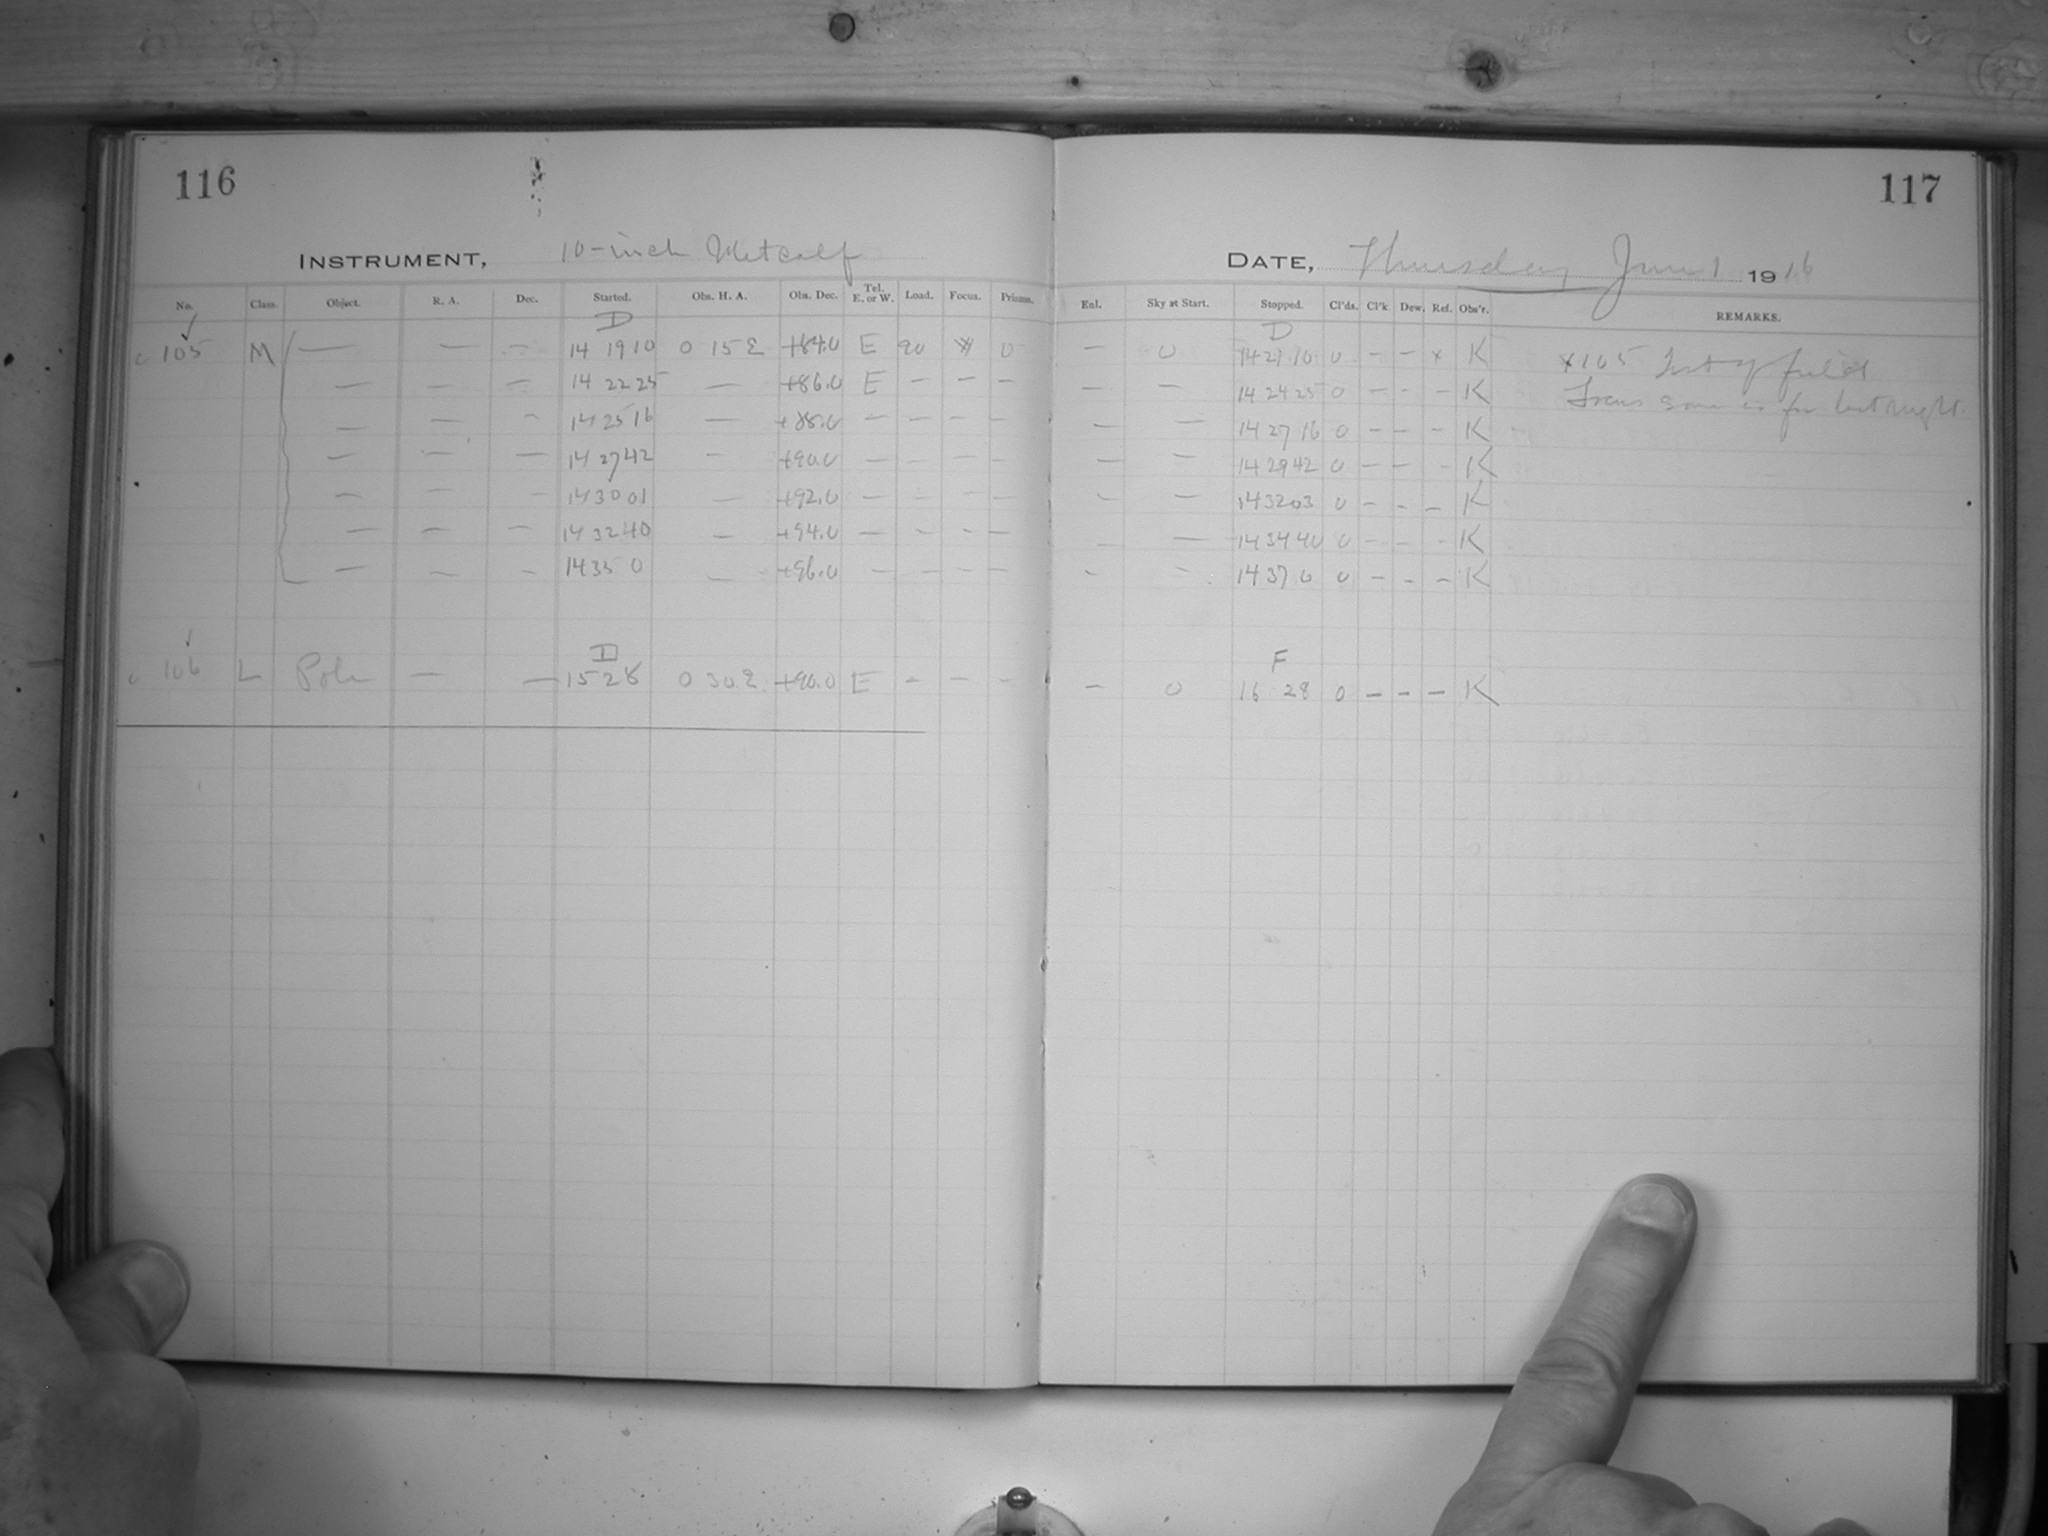 116
117
INSTRUMENT, 10-inch Metcalf
DATE, Thursday June 1 1916
No. Class. Object. R. A. Dec. Started. Obs. H. A. Obs. Dec. Tel. E. or W. Load. Focus. Prisms. Enl. Sky at Start. Stopped. Cl'ds. Cl'k. Dew. Ref. Obs'r. REMARKS.
D D
c 105 M — — — 14 19 10 0 15 E +84.0 E 90 * 0 — 0 14 21 10 0 — — x K x105 Test of field
— — — 14 22 25 — +86.0 E — — — — — 14 24 25 0 — — — K Focus same as for last night
— — — 14 25 16 — +88.0 — — — — — — 14 27 16 0 — — — K
— — — 14 27 42 — +90.0 — — — — — — 14 29 42 0 — — — K
— — — 14 30 01 — +92.0 — — — — — — 14 32 03 0 — — — K
— — — 14 32 40 — +94.0 — — — — — — 14 34 40 0 — — — K
— — — 14 35 0 — +96.0 — — — — — — 14 37 0 0 — — — K
D F
c 106 L Pole — — 15 28 0 30 E +90.0 E — — — — 0 16 28 0 — — — K